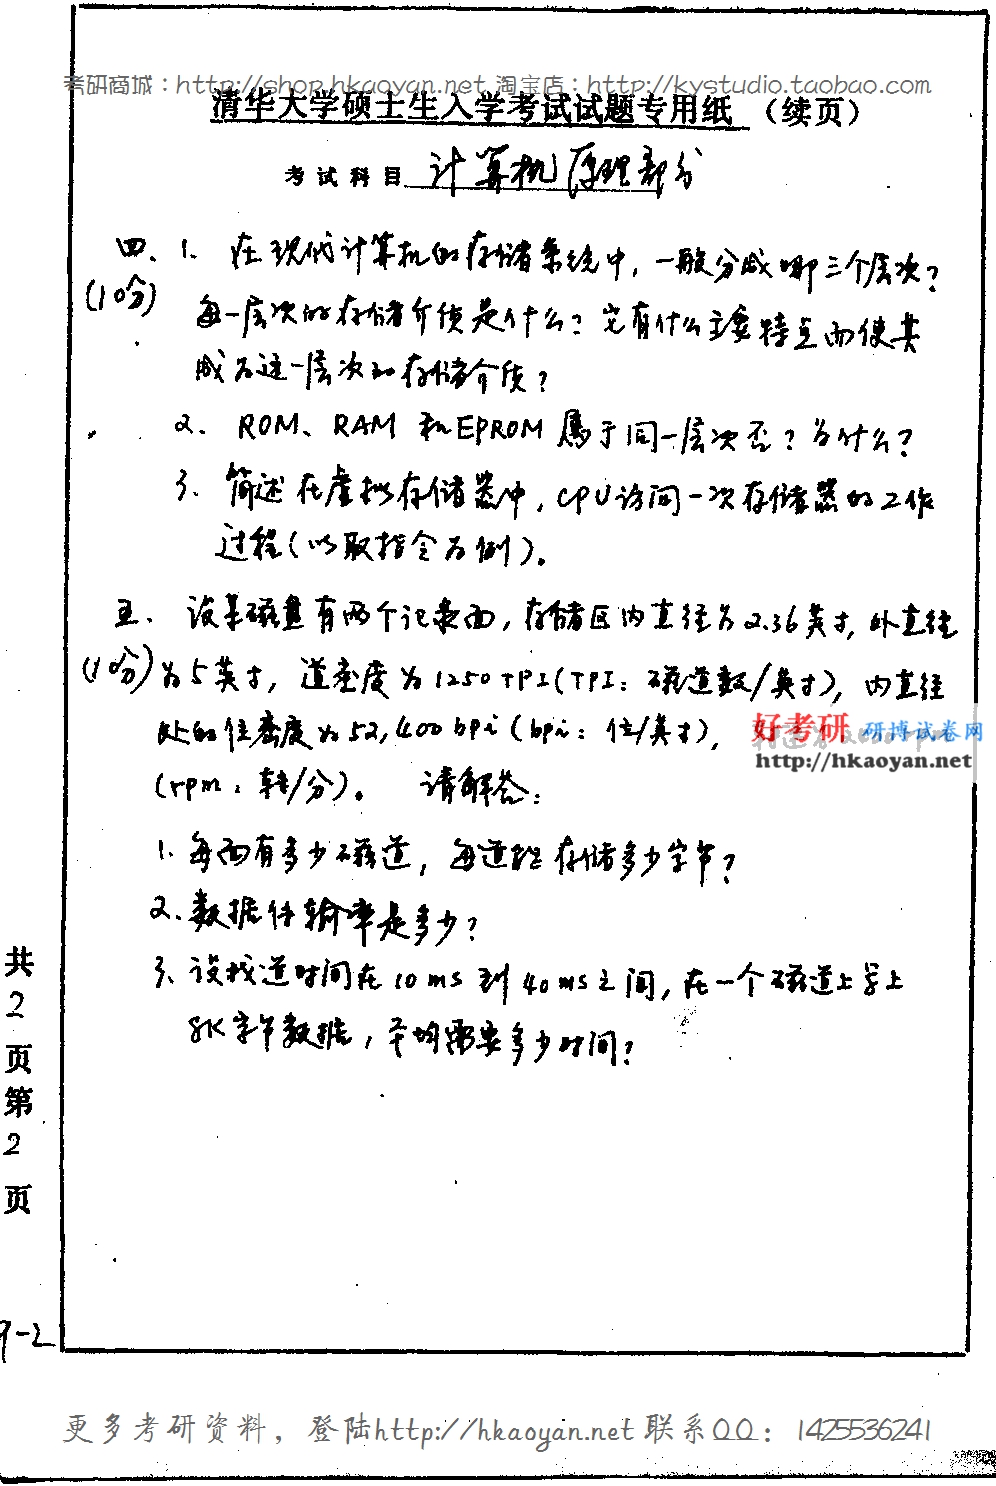 考研商城：http://shop.hkaoyan.net 淘宝店：http://kystudio.taobao.com
清华大学硕士生入学考试试题专用纸 （续页）
考试科目 计算机原理部分
四、1. 在现代计算机的存储系统中，一般分成哪三个层次？
(10分) 每一层次的存储介质是什么？它有什么主要特点而使其
成为这一层次的存储介质？
2. ROM、RAM 和EPROM 属于同一层次否？为什么？
3. 简述在虚拟存储器中，CPU访问一次存储器的工作
过程（以取指令为例）。
五、设某磁盘有两个记录面，存储区内直径为2.36英寸，外直径
(10分) 为5英寸，道密度为1250TPI（TPI：磁道数/英寸），内直径
处的位密度为52,400bpi（bpi：位/英寸），
好考研 研博试卷网
http://hkaoyan.net
（rpm：转/分）。 请解答：
1. 每面有多少磁道，每道能存储多少字节？
2. 数据传输率是多少？
3. 设找道时间在10ms到40ms之间，在一个磁道上写上
8K字节数据，平均需要多少时间？
共2页第2页
9-2
更多考研资料，登陆http://hkaoyan.net 联系QQ：1425536241